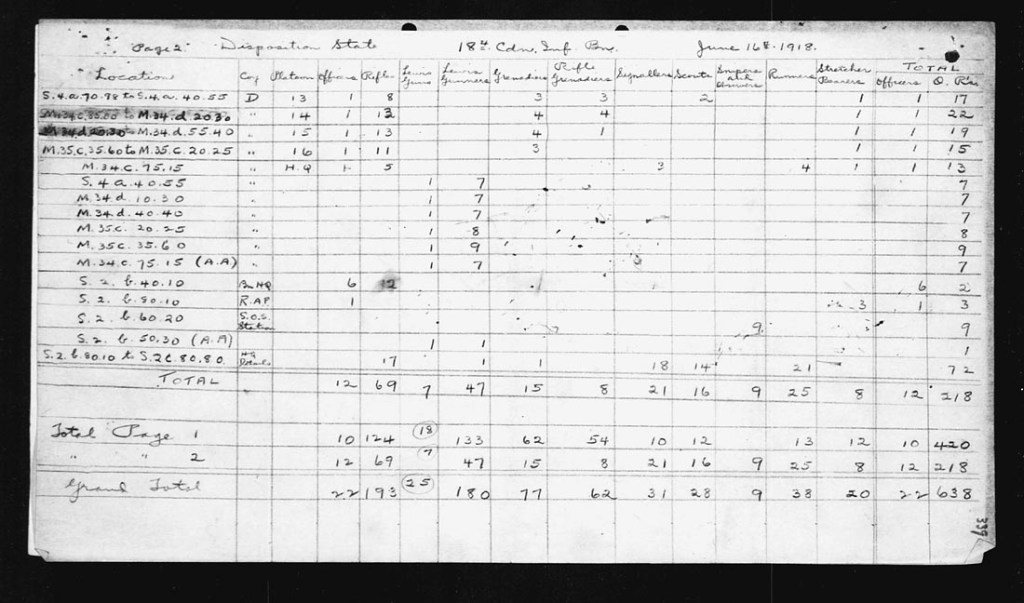 Page 2. Disposition State 18th Cdn. Inf. Bn. June 16th 1918.
TOTAL
Location Coy Platoon Officers Rifle Lewis Guns Lewis Gunners Grenadiers Rifle Grenadiers Signallers Scouts Snipers and Observers Runners Stretcher Bearers Officers O. R's
S.4.a.70.98 to S.4.a.40.55 D 13 1 8 3 3 2 1 1 17
M.34.c.35.00 to M.34.d.20.30 " 14 1 12 4 4 1 1 22
M.34.d.20.30 to M.34.d.55.40 " 15 1 13 4 1 1 1 19
M.35.c.35.60 to M.35.c.20.25 " 16 1 11 3 1 1 15
M.34.c.75.15 " H.Q 1 5 3 4 1 1 13
S.4.a.40.55 " 1 7 7
M.34.d.10.30 " 1 7 7
M.34.d.40.40 " 1 7 7
M.35c.20.25 " 1 8 8
M.35c.35.60 " 1 9 9
M.34.c.75.15 (A.A) " 1 7 7
S.2.b.40.10 Bn HQ 6 12 6 2
S.2.b.80.10 R.A.P. 1 3 1 3
S.2.b.60.20 S.O.S. Station 9 9
S.2.b.50.30 (A.A) 1 1 1
S.2.b.80.10 to S.2.b.80.80 HQ Details 17 1 1 18 14 21 72
TOTAL 12 69 7 47 15 8 21 16 9 25 8 12 218
Total Page 1 10 124 18 133 62 54 10 12 13 12 10 420
" " 2 12 69 7 47 15 8 21 16 9 25 8 12 218
Grand Total 22 193 25 180 77 62 31 28 9 38 20 22 638